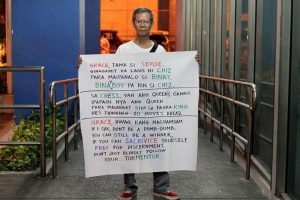 GRACE, TAMA SI SERGE.
GINAGAMIT KA LANG NI CHIZ
PARA MAIPANALO SI BINAY.
BINABOY PA RIN SI CHIZ.
SA CHESS, YAN ANG QUEEN'S GAMBIT.
IPAPAIN NYA ANG QUEEN
PARA MAIPANALO SIYA SA PAGKA-KING.
HE'S THINKING 20 MOVES AHEAD.
GRACE, HUWAG KANG MAGPAPADAM
IF I SAY, DON'T BE A DUMB-DUMB.
YOU CAN STILL BE A WINNER,
IF YOU CAN SACRIVICE YOURSELF.
PRAY FOR DISCERNMENT,
DON'T JUST BLINDLY FOLLOW
YOUR TORMENTOR.